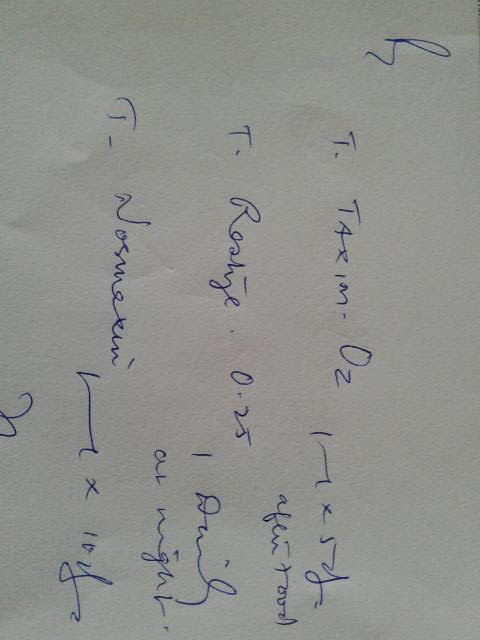 T. TAXIM-O2 1-1 x 5d
after food
T. Restyl. 0.25
1 Daily
at night.
T- Normaxin 1-1 x 10d